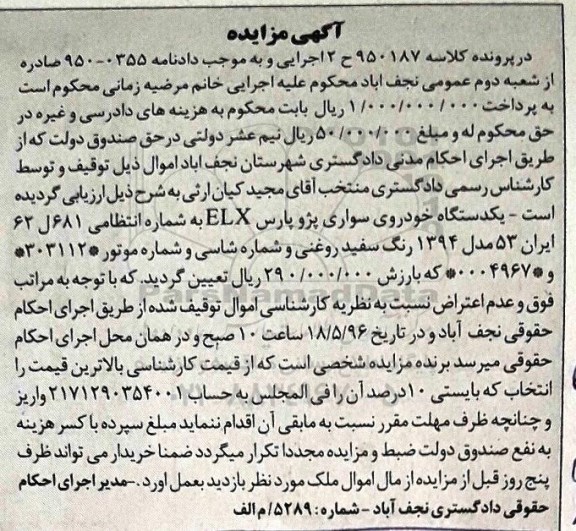 آگهی مزایده
در پرونده کلاسه ۹۵۰۱۸۷ ح ۲ اجرایی و به موجب دادنامه ۰۳۵۵-۹۵۰ صادره
از شعبه دوم عمومی نجف اباد محکوم علیه اجرایی خانم مرضیه زمانی محکوم است
به پرداخت ۱/۰۰۰/۰۰۰/۰۰۰ ریال بابت محکوم به هزینه های دادرسی و غیره در
حق محکوم له و مبلغ ۵۰/۰۰۰/۰۰۰ ریال نیم عشر دولتی در حق صندوق دولت که از
طریق اجرای احکام مدنی دادگستری شهرستان نجف اباد اموال ذیل توقیف و توسط
کارشناس رسمی دادگستری منتخب آقای مجید کیان ارثی به شرح ذیل ارزیابی گردیده
است - یکدستگاه خودروی سواری پژو پارس ELX به شماره انتظامی ۶۸۱ل ۶۲
ایران ۵۳ مدل ۱۳۹۴ رنگ سفید روغنی و شماره شاسی و شماره موتور *۳۰۳۱۱۲*
و *۰۰۰۴۹۶۷* که بارزش ۲۹۰/۰۰۰/۰۰۰ ریال تعیین گردید. که با توجه به مراتب
فوق و عدم اعتراض نسبت به نظریه کارشناسی اموال توقیف شده از طریق اجرای احکام
حقوقی نجف آباد و در تاریخ ۱۸/۵/۹۶ ساعت ۱۰ صبح و در همان محل اجرای احکام
حقوقی میرسد برنده مزایده شخصی است که از قیمت کارشناسی بالاترین قیمت را
انتخاب که بایستی ۱۰درصد آن را فی المجلس به حساب ۲۱۷۱۲۹۰۳۵۴۰۰۱ واریز
و چنانچه ظرف مهلت مقرر نسبت به مابقی آن اقدام ننماید مبلغ سپرده با کسر هزینه
به نفع صندوق دولت ضبط و مزایده مجددا تکرار میگردد ضمنا خریدار می تواند ظرف
پنج روز قبل از مزایده از مال اموال ملک مورد نظر بازدید بعمل اورد.-مدیر اجرای احکام
حقوقی دادگستری نجف آباد - شماره: ۵۲۸۹/م الف